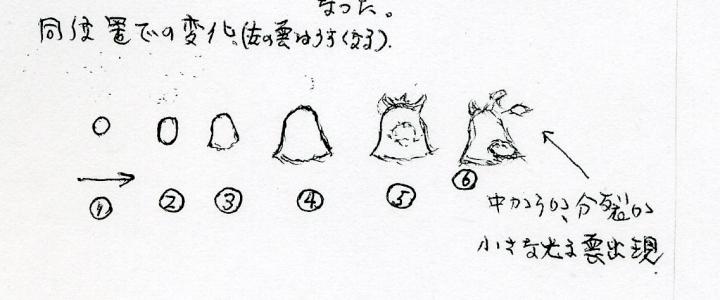 なった。
同位置での変化。(左の雲はうすくなる).
① ② ③ ④ ⑤ ⑥
中からか、分裂か
小さな光る雲出現